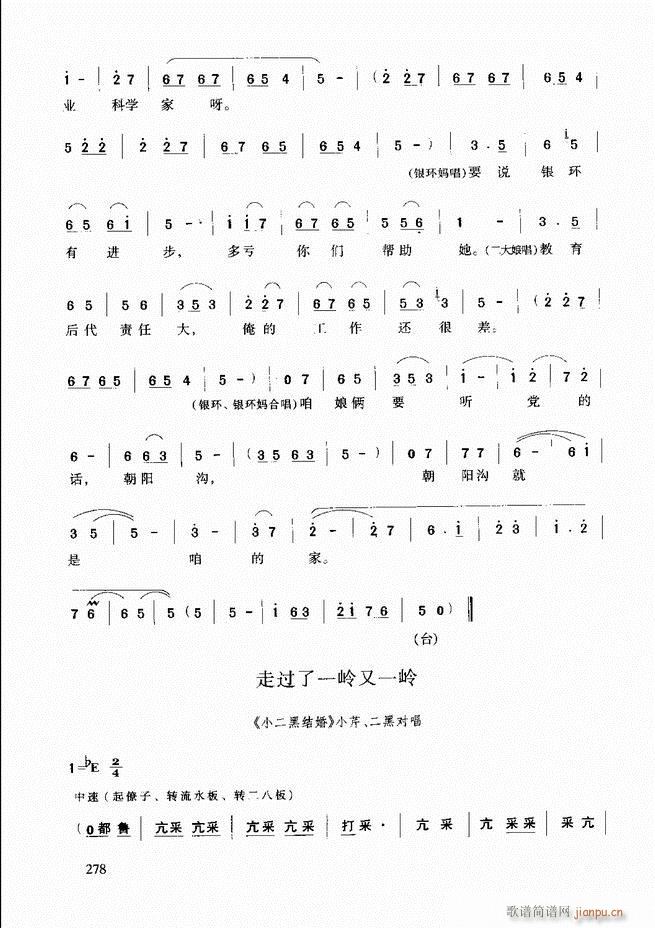 i - | 2 2 7 | 6 7 6 7 | 6 5 4 | 5 - | ( 2 2 7 | 6 7 6 7 | 6 5 4
业 科学 家 呀。
5 2 2 | 2 2 7 | 6 7 6 5 | 6 5 4 | 5 - ) | 3 . 5 | 6 5
(银环妈唱)要 说 银 环
6 5 6 i | 5 - | i i 7 | 6 7 6 5 | 5 5 6 | 1 - | 3 . 5
有 进 步, 多亏 你 们 帮助 她。(二大娘唱)教育
6 5 | 5 6 | 3 5 3 | 2 2 7 | 6 7 6 5 | 5 3 | 5 - | ( 2 2 7
后代 责任 大, 俺的 工 作 还 很 差。
6 7 6 5 | 6 5 4 | 5 - ) | 0 7 | 6 5 | 3 5 3 | i - | i 2 | 7 2
(银环、银环妈合唱)咱 娘俩 要 听 党 的
6 - | 6 6 3 | 5 - | ( 3 5 6 3 | 5 - ) | 0 7 | 7 7 | 6 - | 6 i
话, 朝阳 沟, 朝 阳沟 就
3 5 | 5 - | 3 - | 3 7 | 2 - | 2 7 | 6 . i | 2 3 | i . 2
是 咱 的 家。
7 6 | 6 5 | 5 ( 5 | 5 - | i 6 3 | 2 i 7 6 | 5 0 ) ‖
(台)
走过了一岭又一岭
《小二黑结婚》小芹、二黑对唱
1=♭E 2/4
中速(起僚子、转流水板、转二八板)
( 0 都 鲁 | 亢采 亢采 | 亢采 亢采 | 打采· | 亢 采 | 亢 采采 | 采亢
278
歌谱简谱网 jianpu.cn